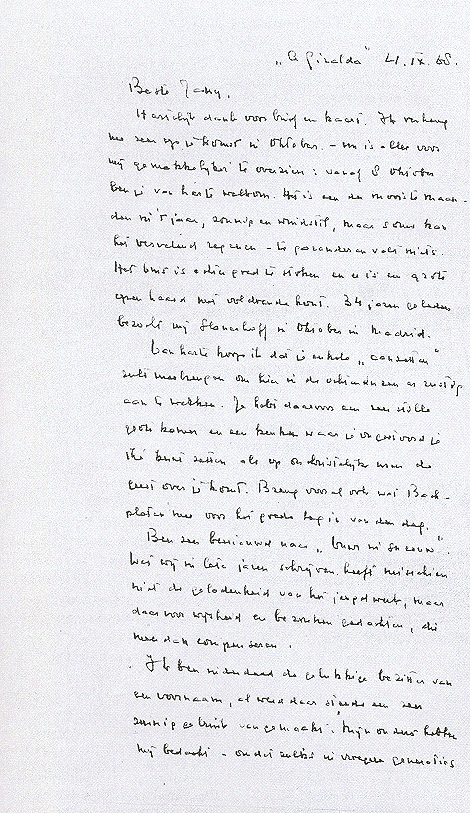 "a Giralda" 21.IX.68.
Beste Jacky,
Hartelijk dank voor brief en kaart. Ik verheug
me zeer op je komst in Oktober. – nu is alles voor
mij gemakkelijker te overzien: vanaf 8 Oktober
ben je van harte welkom. Het is een der mooiste maan-
den in 't jaar, zonnig en windstil, maar soms kan
het vervelend regenen – te garanderen valt niets.
Het huis is echter goed te stoken en er is een grote
open haard met voldoende hout. 34 jaren geleden
bezocht mij Slauerhoff in Oktober in Madrid.
Van harte hoop ik dat je enkele "aanzetten"
zult meebrengen om hier in de ochtenduren er rustig
aan te werken. Je hebt daarvoor een zeer stille
grote kamer en een keuken waar je ongestoord je
thé kunt zetten als op onchristelijke uren de
geest over je komt. Breng vooral ook wat Bach-
platen mee voor het goede begin van den dag.
Ben zeer benieuwd naar "Vuur in sneeuw".
Wat wij in late jaren schrijven heeft misschien
niet de geladenheid van het jeugdwerk, maar
daarvoor wijsheid en bezonken gedachten, die
meer dan compenseren.
Ik ben inderdaad de gelukkige bezitter van
een voornaam, al werd daar steeds een zeer
zuinig gebruik van gemaakt. Mijn ouders hebben
mij bedacht – omdat zulks in vroegere generaties